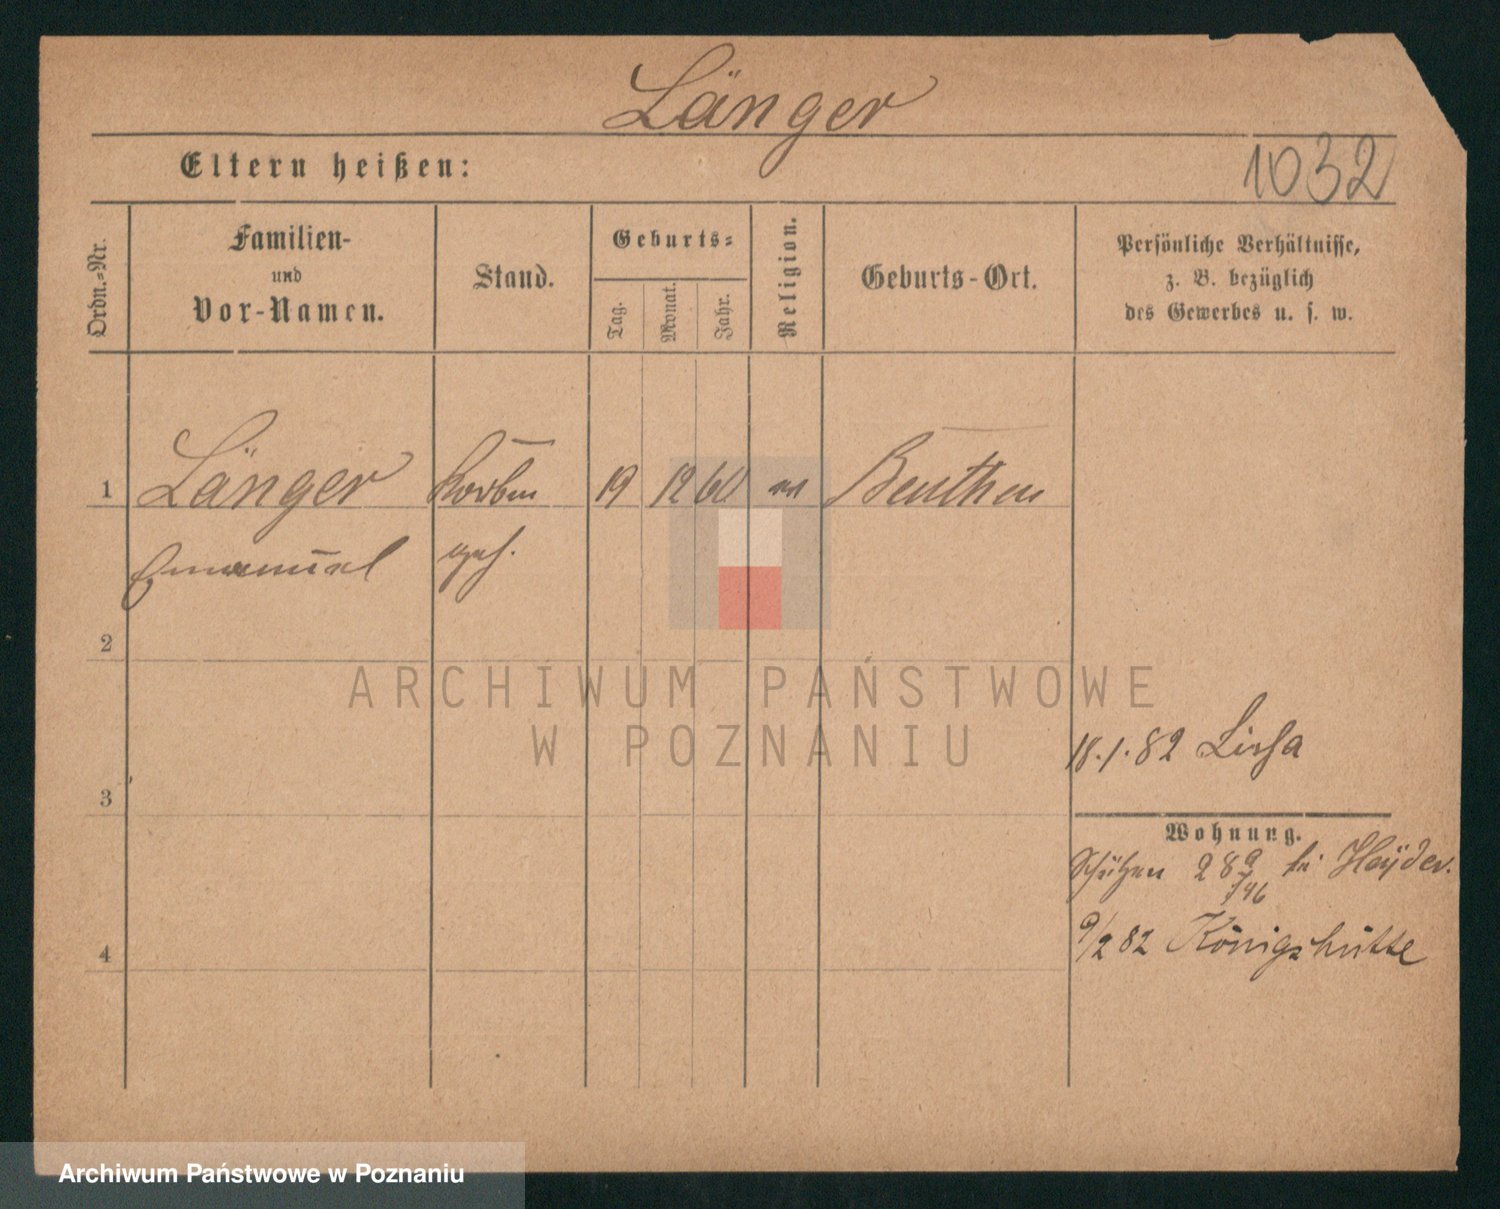 Länger
Eltern heißen:
1032
Ordn.-Nr.
Familien-
und
Vor-Namen.
Stand.
Geburts-
Tag.
Monat.
Jahr.
Religion.
Geburts-Ort.
Persönliche Verhältnisse,
z. B. bezüglich
des Gewerbes u. s. w.
1 Länger 19 12 60 Beuthen
Emanuel
2
ARCHIWUM PAŃSTWOWE
W POZNANIU
18.1.82 Lissa
3
Wohnung.
Schützen 28a bei Heyder.
/46
9/2 82 Königshütte
4
Archiwum Państwowe w Poznaniu